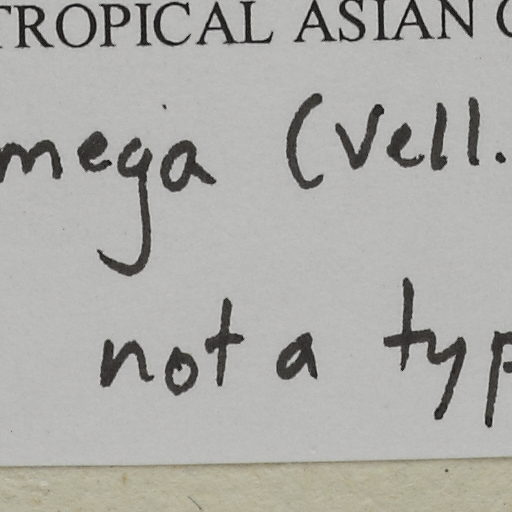 TROPICAL ASIAN
mega (Vell.
not a typ